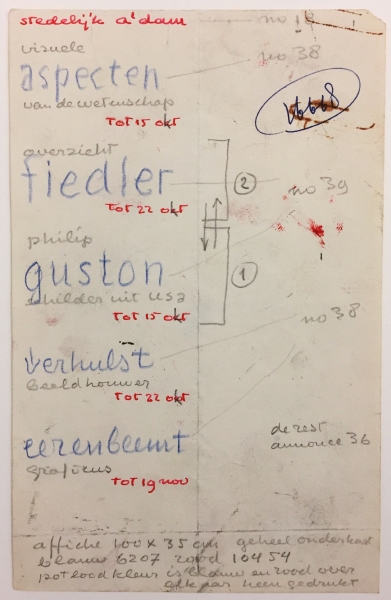 stedelijk a'dam
no
visuele
no 38
aspecten
van de wetenschap
tot 15 okt
overzicht
fiedler
②
no 39
tot 22 okt
philip
guston
①
schilder uit usa
tot 15 okt
no 38
verhulst
beeldhouwer
tot 22 okt
eerenbeemt
de rest
annonce 36
graficus
tot 19 nov
affiche 100 x 35 cm geheel onderkast
blauw 6207 rood 10454
potloodkleur is blauw en rood over
elkaar heen gedrukt